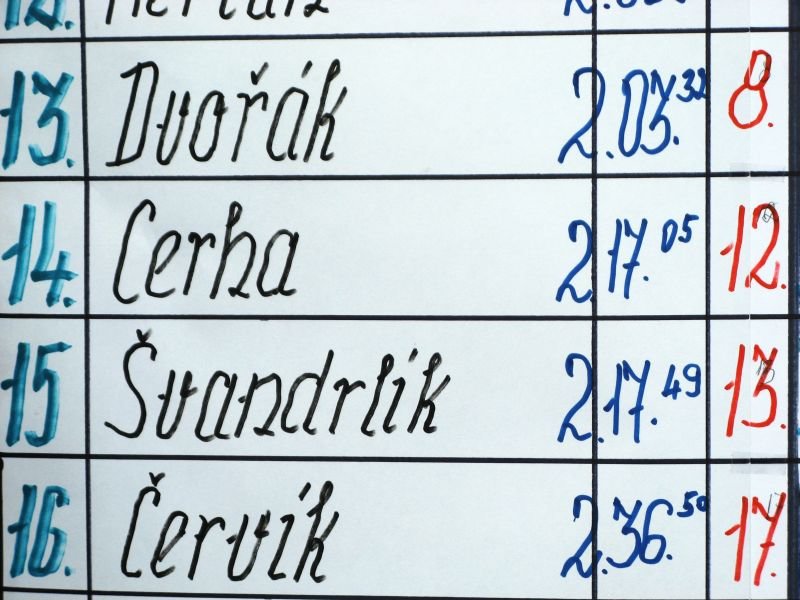 13. Dvořák 2.03.32 8.
14. Cerha 2.17.05 12.
15 Švandrlík 2.17.49 13.
16. Červík 2.36.50 17.